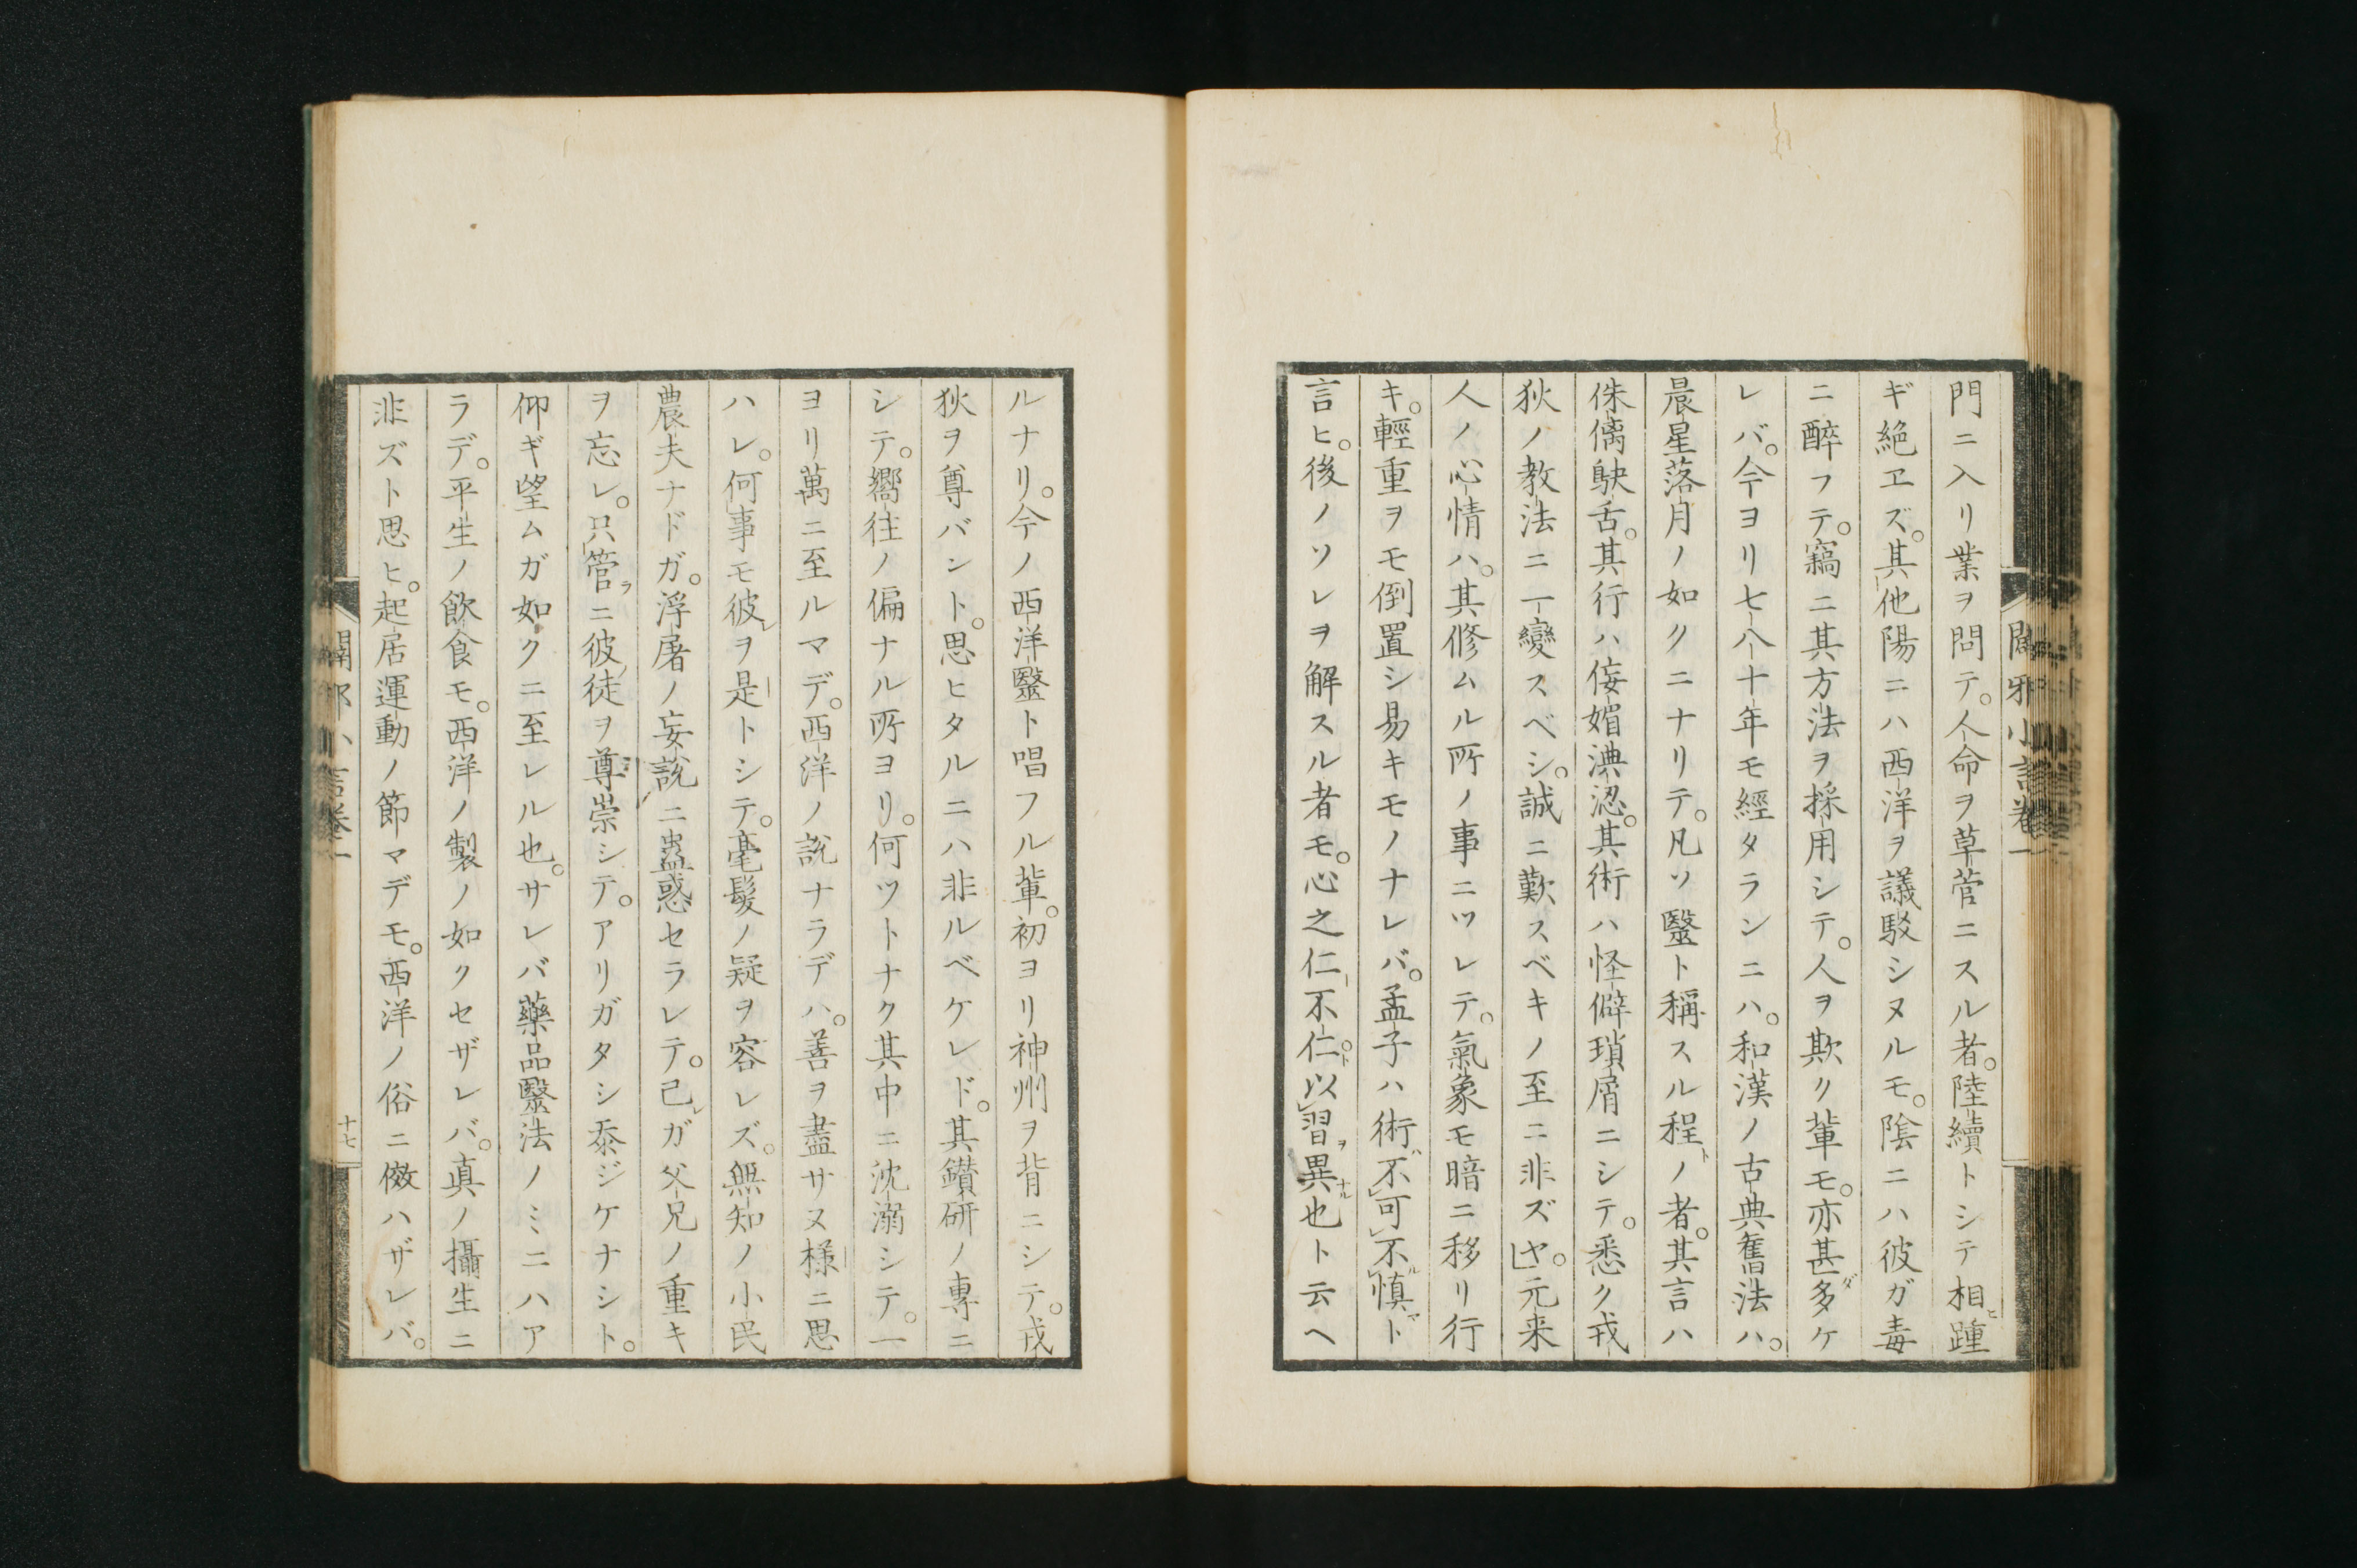 門ニ入リ業ヲ問テ。人命ヲ草菅ニスル者。陸續トシテ相ヒ踵
ギ絶エズ。其他陽ニハ西洋ヲ議駁シヌルモ。陰ニハ彼ガ毒
ニ醉フテ。竊ニ其方法ヲ採用シテ。人ヲ欺ク輩モ。亦甚ダ多ケ
レバ。今ヨリ七八十年モ經タランニハ。和漢ノ古典舊法ハ。
晨星落月ノ如クニナリテ。凡ソ醫ト稱スル程ノ者。其言ハ
侏𠌯鴃舌。其行ハ侫媚淟涊。其術ハ怪僻瑣屑ニシテ。悉ク戎
狄ノ教法ニ一變スベシ。誠ニ歎スベキノ至ニ非ズヤ。元来
人ノ心情ハ。其修ムル所ノ事ニツレテ。氣象モ暗ニ移リ行
キ。輕重ヲモ倒置シ易キモノナレバ。孟子ハ術ハ不可不ル慎マト
言ヒ。後ノソレヲ解スル者モ。心之仁不仁。ト以習ヲ異ナル也ト云ヘ
闢邪小言卷一
ルナリ。今ノ西洋醫ト唱フル輩。初ヨリ神州ヲ背ニシテ。戎
狄ヲ尊バント。思ヒタルニハ非ルベケレド。其鑚研ノ專ニ
シテ。嚮往ノ偏ナル所ヨリ。何ツトナク其中ニ沈溺シテ。一
ヨリ萬ニ至ルマデ。西洋ノ説ナラデハ。善ヲ盡サヌ様ニ思
ハレ。何事モ彼ヲ是トシテ。毫髮ノ疑ヲ容レズ。無知ノ小民
農夫ナドガ。浮屠ノ妄説ニ蠱惑セラレテ。己レガ父兄ノ重キ
ヲ忘レ。只管ラニ彼徒ヲ尊崇シテ。アリガタシ忝ジケナシト。
仰ギ望ムガ如クニ至レル也。サレバ藥品醫法ノミニハア
ラデ。平生ノ飲食モ。西洋ノ製ノ如クセザレバ。真ノ攝生ニ
非ズト思ヒ。起居運動ノ節マデモ。西洋ノ俗ニ傚ハザレバ。
闢邪小言卷一
十七